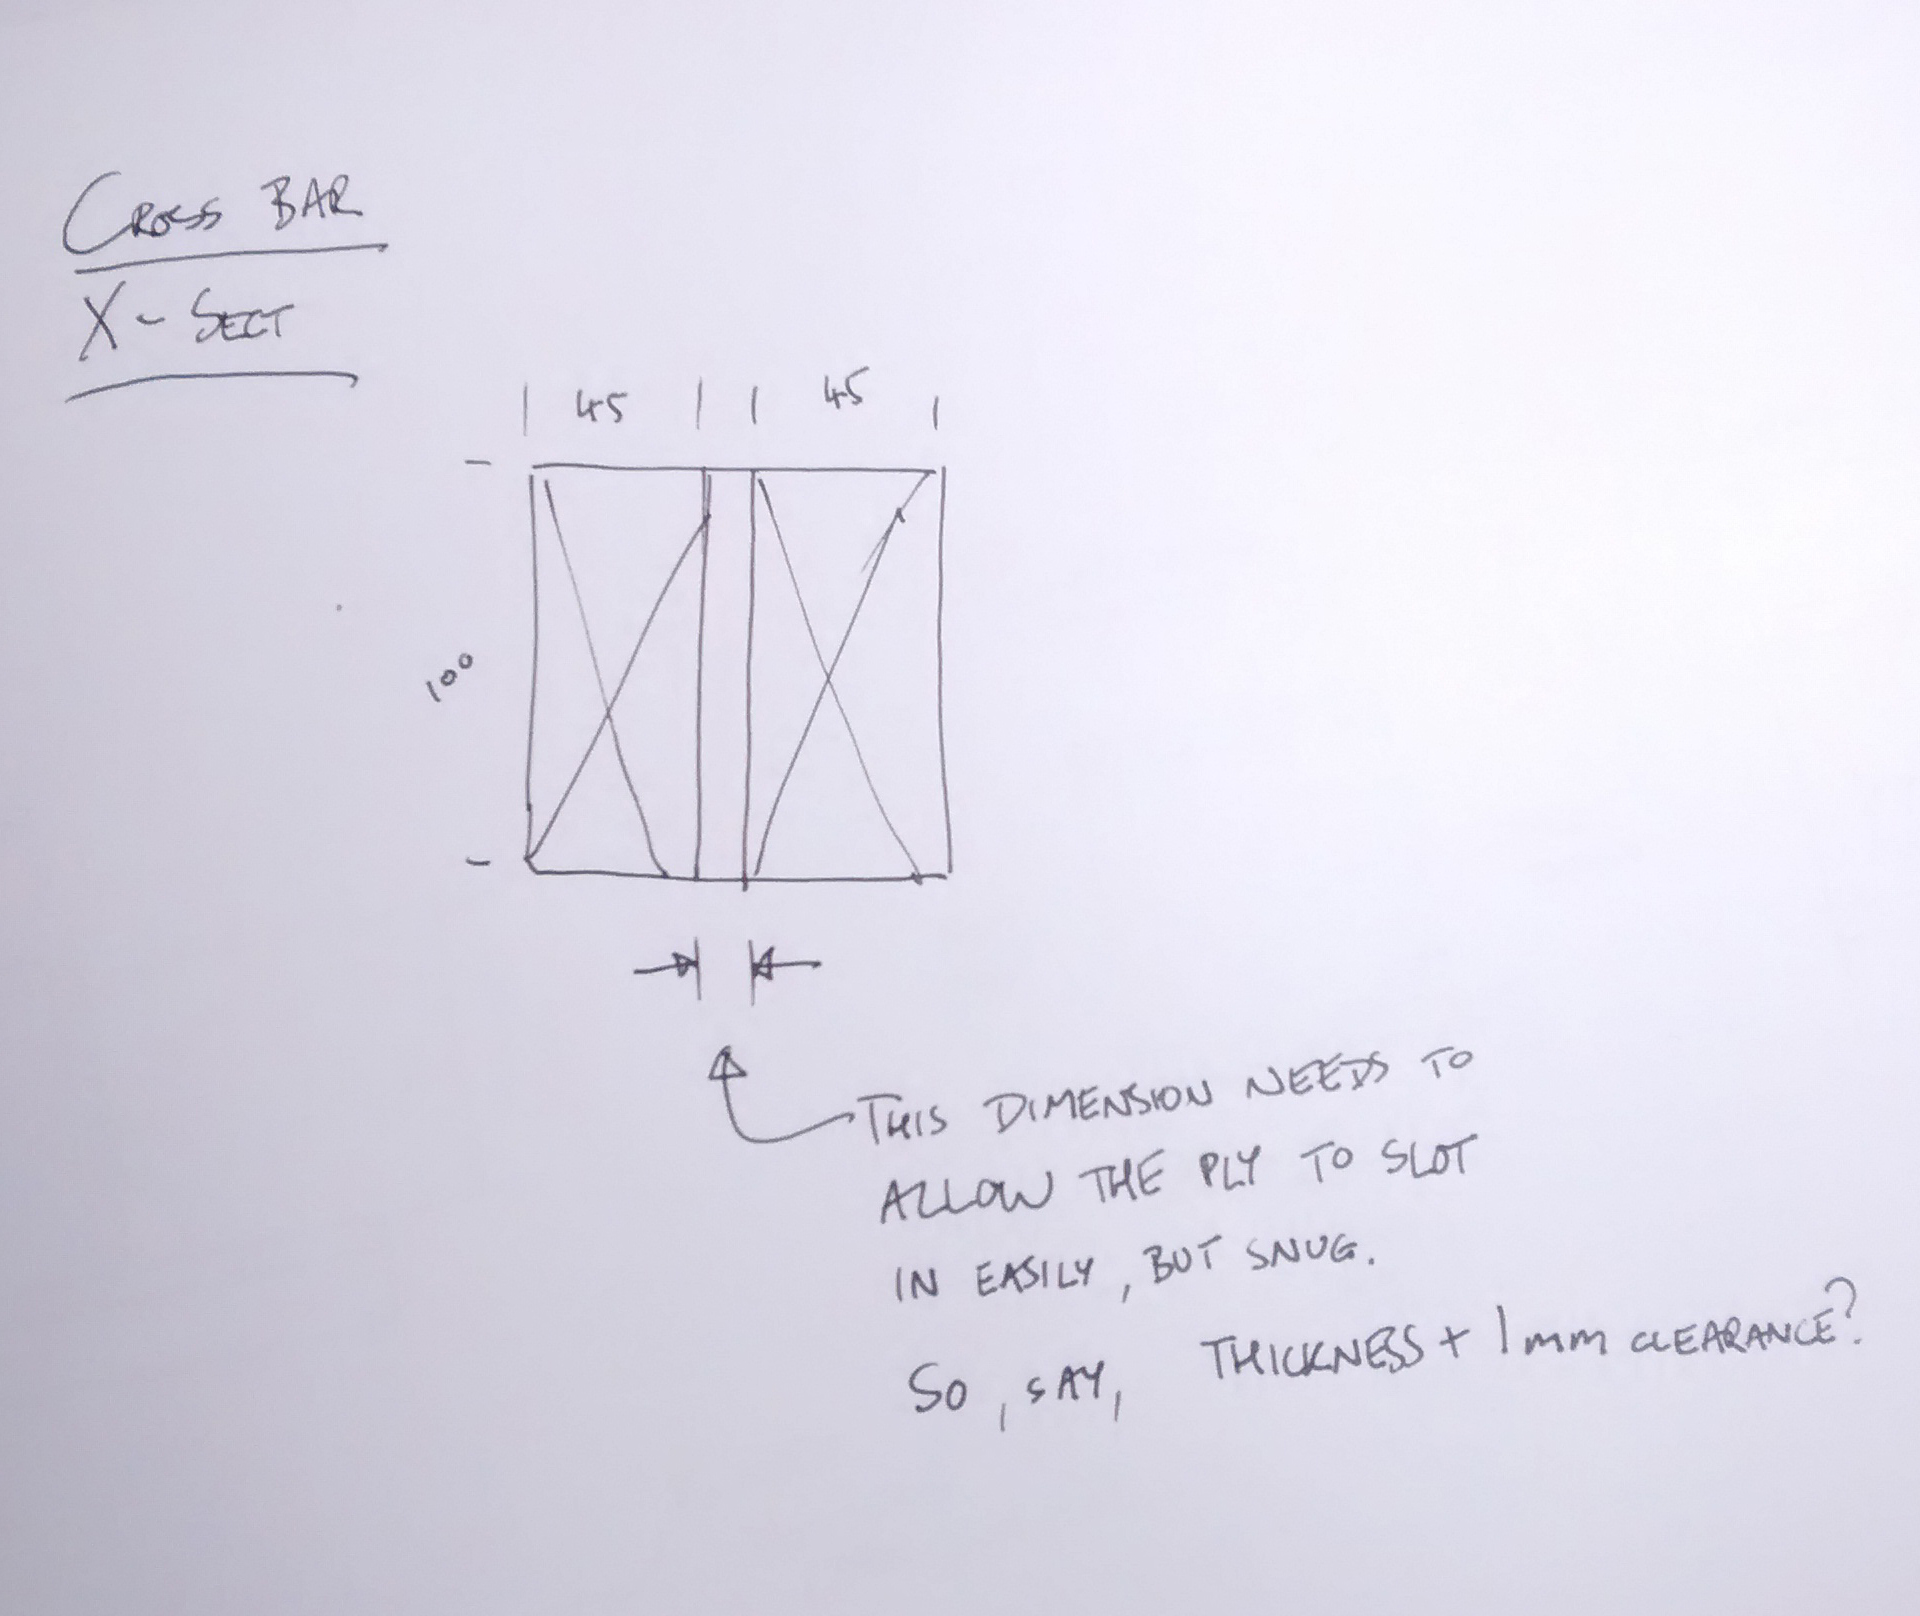 CROSS BAR
X-SECT
45 45
100
THIS DIMENSION NEEDS TO
ALLOW THE PLY TO SLOT
IN EASILY, BUT SNUG.
SO, SAY, THICKNESS + 1mm CLEARANCE?